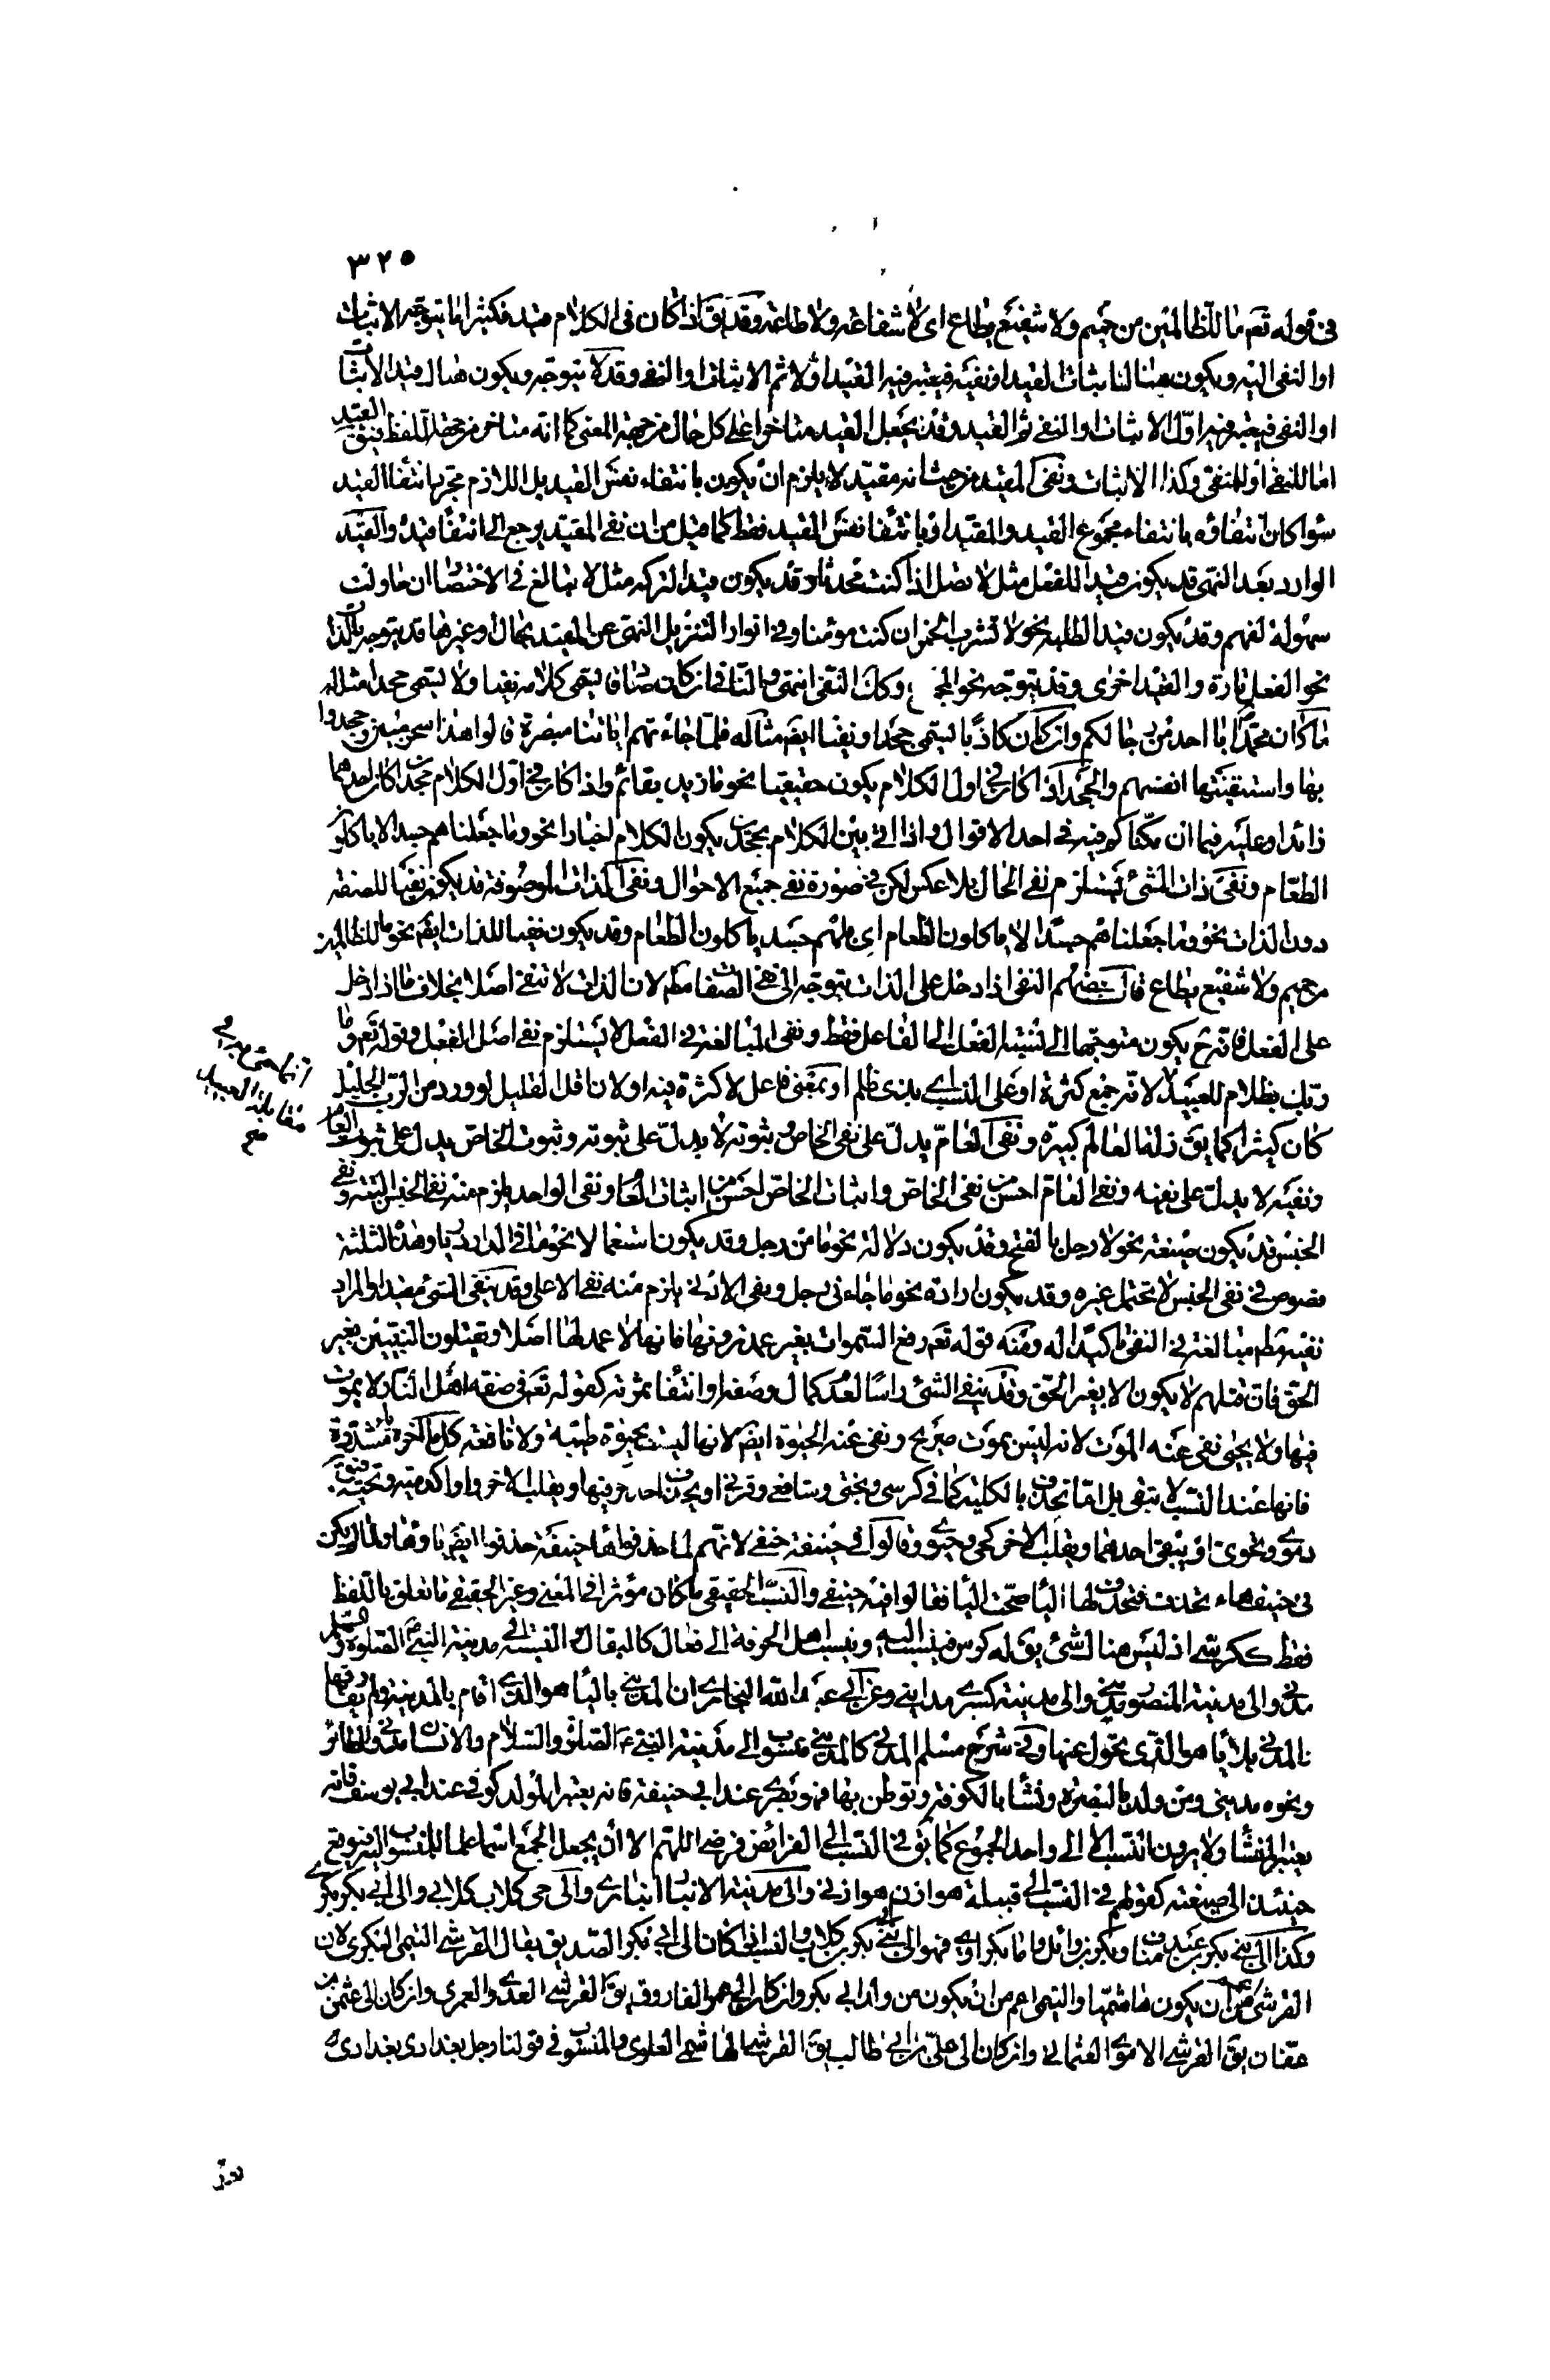 ٣٢٥
في قوله تعم ما للظالمين من حميم ولا شفيع يطاع اى لا شفاعة ولا طاعة وقد يق اذا كان فى الكلام قيد فكثيرا ما يتوجه الاثبات
او النفى اليه ويكون هنا لنا بثبات القيد او نفيه فيعتبر فيه القيد اولا ثم الاثبات او النفى وقد لا يتوجه ويكون هناك قيد الاثبات
او النفى فيعتبر فيه اول الاثبات او النفى ثم القيد وقد يجعل القيد متاخرا على كل حال من جهة المعنى كما انه متاخر من جهة اللفظ فيق القيد
اما للنفى او للمنفى وكذا الاثبات ونفى المقيد من حيث انه مقيد لا يلزم ان يكون بانتفاء نفس القيد بل اللازم مجرد انتفا القيد
سوا كان انتفاؤه بانتفاء مجموع القيد والمقيد او بانتفا نفس القيد فقط كما قيل من ان نفى المقيد يرجع الى انتفا قيده والقيد
الوارد بعد النهى قد يكون قيدا للفعل مثل لا تصل اذا كنت محدثا وقد يكون قيدا لتركه مثل لا تبالغ فى الاختصا ان حاولت
سهولة الفهم وقد يكون قيد الطلبه نحو لا تشرب الخمر ان كنت مؤمنا وفى انوار التنزيل النهى عن المقيد بحال او غيرها قد يتوجه بالذات
نحو الفعل تارة والقيد اخرى وقد يتوجه نحو المج وكذ النفى انتهى والنافى ان كان صادقا ليسمى كلامه نفيا ولا يسمى جحدا مثاله
ما كان محمد ابا احد من رجالكم وان كان كاذبا يسمى جحدا ونفيا ايض مثاله فلما جاءتهم اياتنا مبصرة قالوا هذا سحر مبين وجحدوا
بها واستيقنتها انفسهم والجحد اذا كان فى اول الكلام يكون حقيقيا نحو ما زيد بقائم واذا كان فى اول الكلام جحدان كان احدهما
زائدا وعليه فيما ان مكناكم فيه فى احد الاقوال واذا اتى بين الكلام بجحدين يكون الكلام اخبارا نحو وما جعلناهم جسدا لا ياكلون
الطعام ونفى ذات الشئ يستلزم نفى الحال بلا عكس لكن فى صورة نفى جميع الاحوال ونفى الذات الموصوفة قد يكون نفيا للصفة
دون الذات نحو وما جعلناهم جسدا لا ياكلون الطعام اى بل هم جسد ياكلون الطعام وقد يكون نفيا للذات ايض نحو ما للظالمين
من حميم ولا شفيع يطاع قال بعضهم النفى اذا دخل على الذات يتوجه الى نفى الصفات مط لان الذات لا تنفى اصلا بخلاف ما اذا دخل
على الفعل فانه ح يكون متوجها الى نسبة الفعل الى الفاعل فقط ونفى المبالغة فى الفعل لا يستلزم نفى اصل الفعل وقوله تعم وما
ربك بظلام للعبيد لانه جمع كثرة او على النسب اى بذى ظلم او بمعنى فاعل لا كثرة فيه او لان اقل القليل لو ورد من الرب الجليل
كان كثيرا كما يق زلة العالم كبيرة ونفى العام يدل على نفى الخاص وثبوته لا يدل على ثبوته وثبوت الخاص يدل على ثبوت العام
ونفيه لا يدل على نفيه ونفى العام احسن من نفى الخاص واثبات الخاص احسن من اثبات العام ونفى الواحد يلزم منه نفى الجنس البتة ونفى
الجنس قد يكون صيغة نحو لا رجل بالفتح وقد يكون دلالة نحو ما من رجل وقد يكون استعمالا نحو ما فى الدار ديار وهذه الثلثة
نصوص فى نفى الجنس لا تحتمل غيره وقد يكون ارادة نحو ما جاءنى رجل ونفى الادنى يلزم منه نفى الاعلى وقد ينفى الشئ مقيدا والمراد
نفيه مط مبالغة فى النفى وتاكيدا له ومنه قوله تعم رفع السموات بغير عمد ترونها فانها لا عمد لها اصلا ويقتلون النبيين بغير
الحق فان قتلهم لا يكون الا بغير الحق وقد ينفى الشئ راسا لعدم كمال وصفه او انتفا ثمرته كقوله تعم فى صفة اهل النار لا يموت
فيها ولا يحيى نفى عنه الموت لانه ليس بموت صريح ونفى عنه الحيوة ايض لانها ليست بحيوة طيبة ولا نافعة كل ما آخره ياء مشددة
فانها عند النسب لا تبقى بل اما تحذف بالكلية كما فى كرسى وبختى وشافعى وقمرى او يحذف احد حرفيها ويقلب الاخر واوا كدمية وتحية فيق
دموى وتحوى او يبقى احدهما ويقلب الاخر كحى وحيوى وقالوا فى حنيفة حنفى لانهم لما حذفوا هاء حنيفة حذفوا ايض ياؤها ولما لم يكن
فى حنيف هاء تحذف فتحذف لها اليا صحت اليا فقالوا فيه حنيفى والنسب الحقيقى ما كان مؤثرا فى المعنى وغير الحقيقى ما تعلق باللفظ
فقط ككرسى اذ ليس هنا شئ يق له كرس فينسب اليه وينسب اهل الحرفة الى فعال كالبقال والنسبة الى مدينة النبى عم الصلوة والسلم
مدنى والى مدينة المنصور مدينى والى مدينة كسرى مداينى وعن ابى عبد الله البخارى ان المدينى باليا هو الذى اقام بالمدينة ولم يفارقها
والمدنى بلا يا هو الذى تحول عنها وفى شرح مسلم المدنى كالمدينى منسوب الى مدينة النبى عم الصلوة والسلام والانسان مدنى والطائر
ونحوه مدينى ومن ولد بالبصرة ونشا بالكوفة وتوطن بها فهو بصرى عند ابى حنيفة فانه يعتبر المولد كوفى عند ابى يوسف فانه
يعتبر المنشا ولا يرون النسب الا الى واحد الجموع كما يق فى النسب الى الفرائض فرضى اللهم الا أن يجعل الجمع اسما علما للمنسوب اليه فيوقع
حينئذ الى صيغته كقولهم فى النسب الى قبيلة هوازن هوازنى والى مدينة الانبار انبارى والى حى كلاب كلابى والى ابى بكر بكرى
وكذا الى بنى بكر بن عبد مناف وبكر بن وائل واما بكراوى فهو الى بنى بكر بن كلاب والنسب ان كان الى ابى بكر الصديق يقال القرشى التيمى البكرى لان
القرشى اعم من ان يكون هاشميا والتيمى اعم من ان يكون من ولد ابى بكر وان كان الى عمر الفاروق يق القرشى العدوى والعمرى وان كان الى عثمن بن
عفان يق القرشى الاموى العثمانى وان كان الى على بن ابى طالب يق القرشى الهاشمى العلوى والمنسوب فى قولنا رجل بغدادى بغدادى